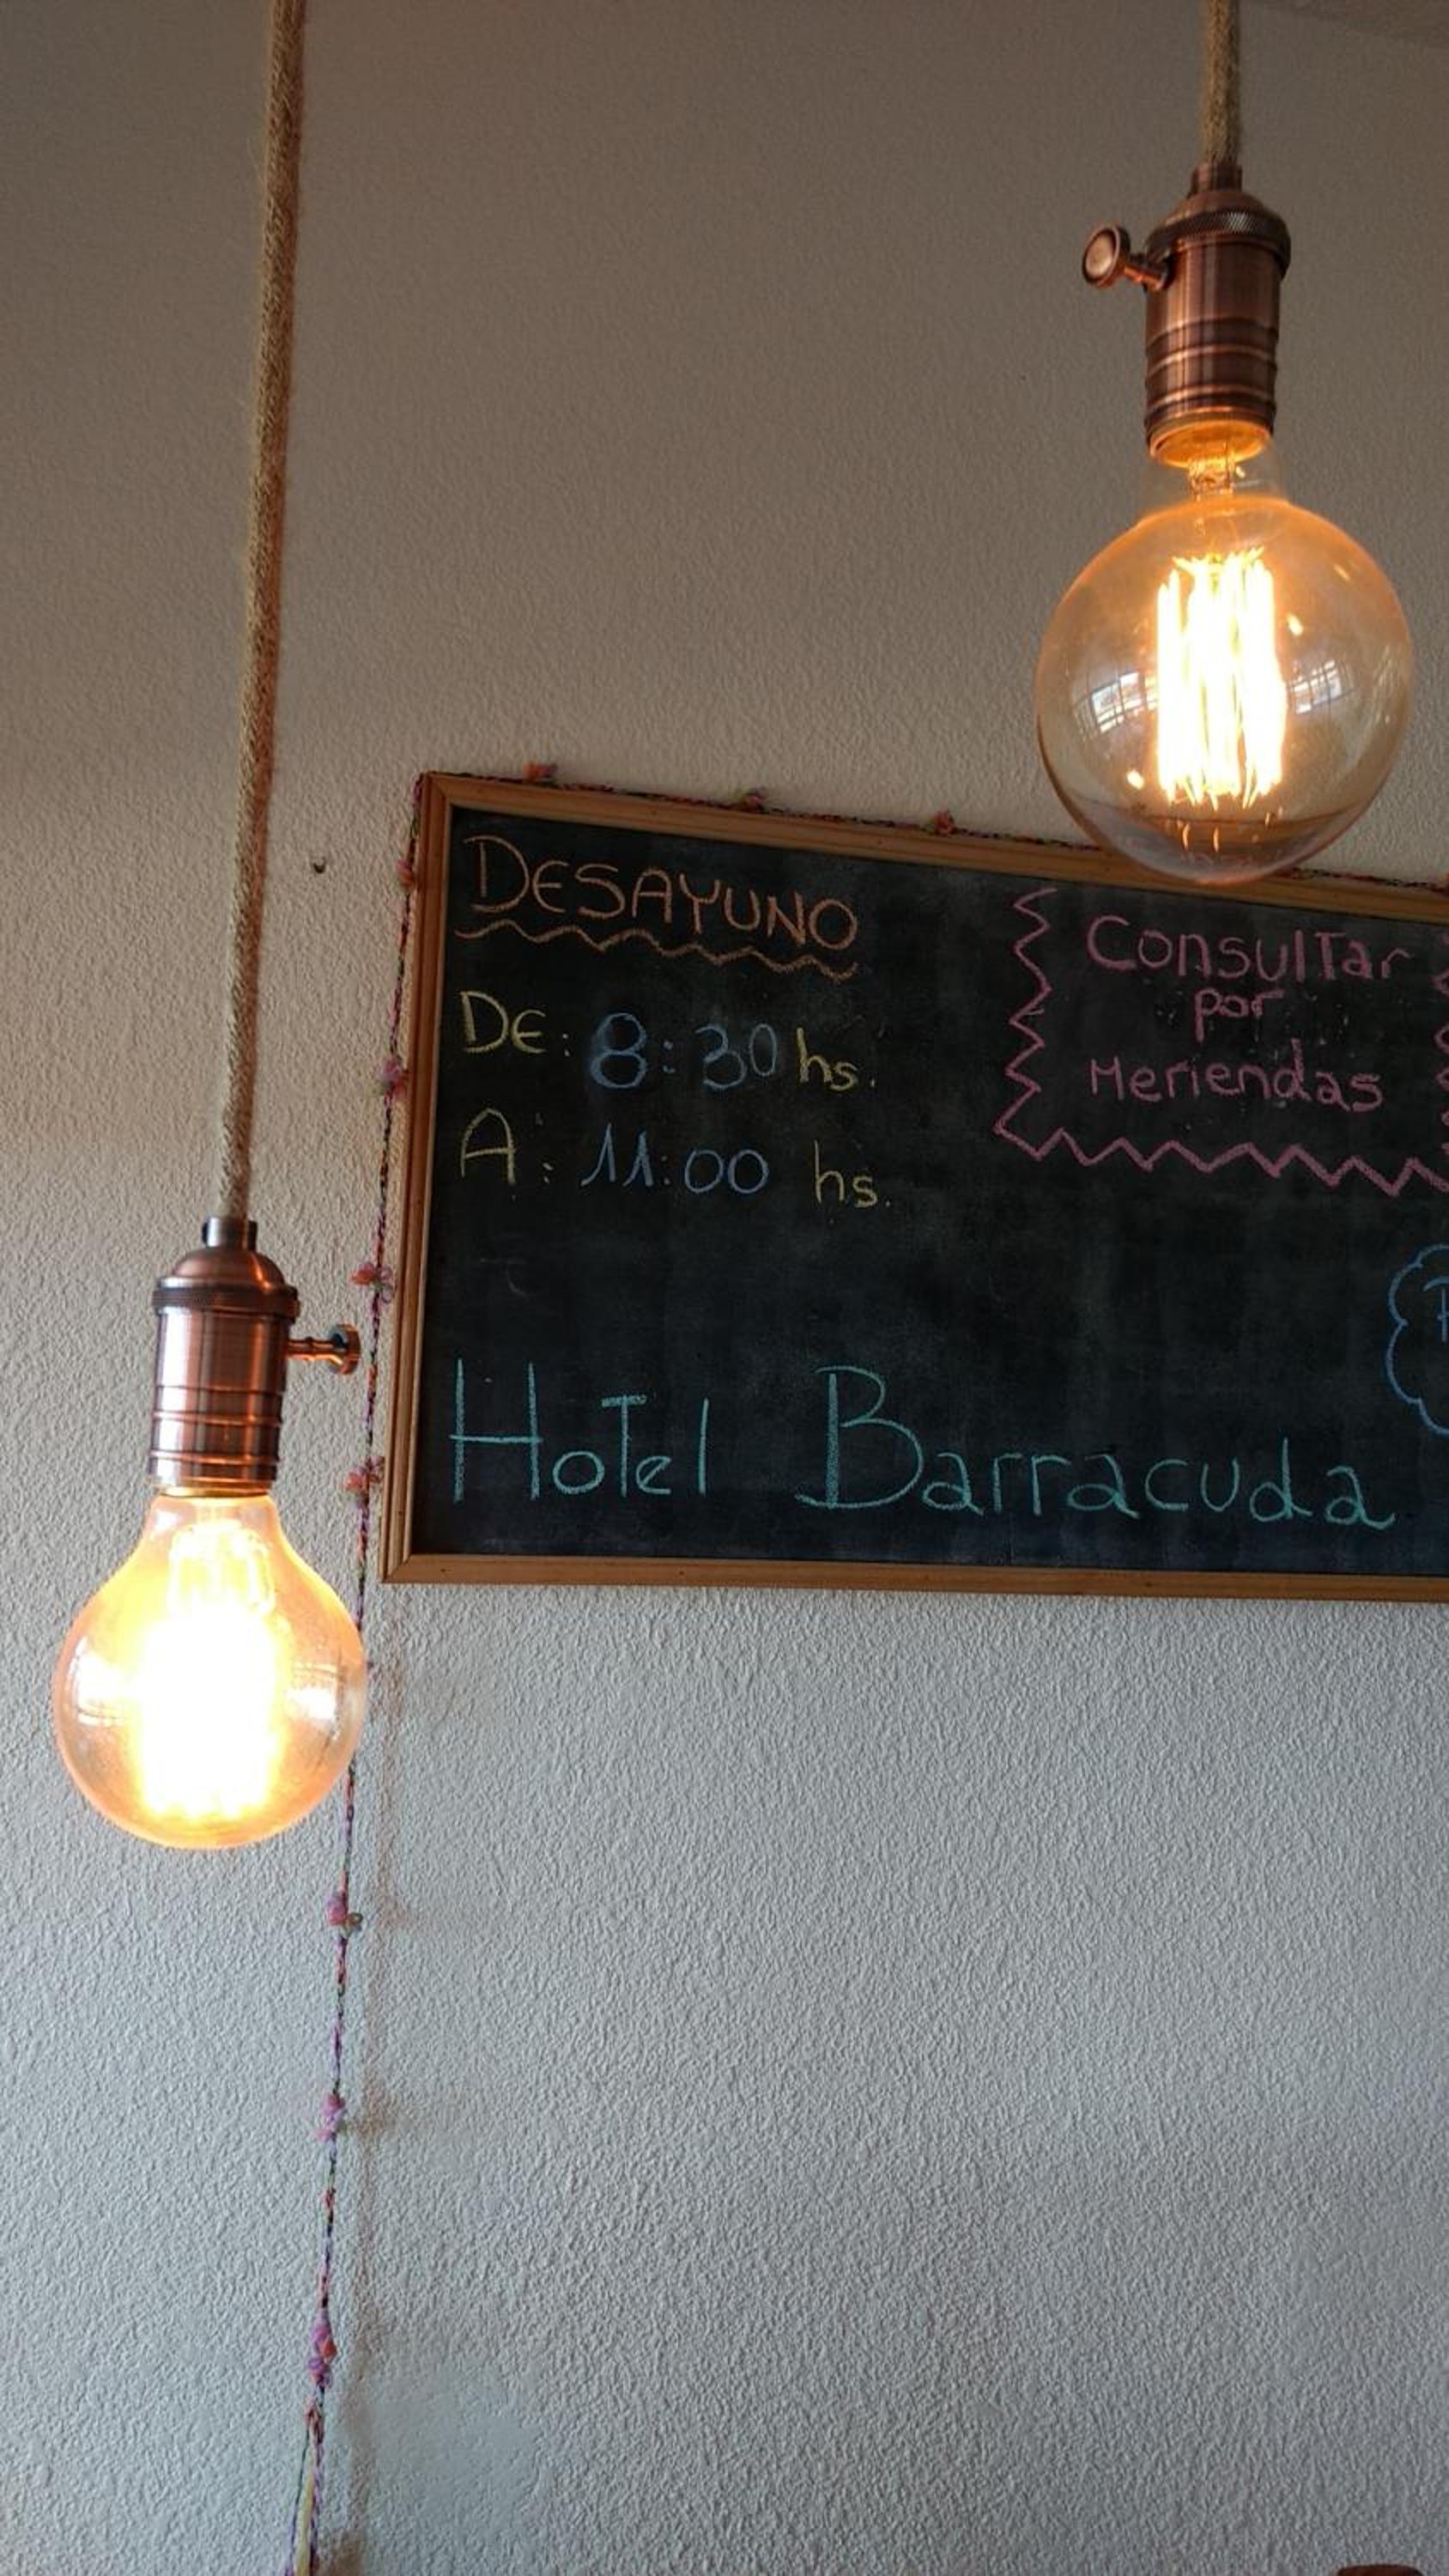 DESAYUNO
DE: 8:30 hs.
A: 11:00 hs.
Consultar
por
Meriendas
Hotel Barracuda